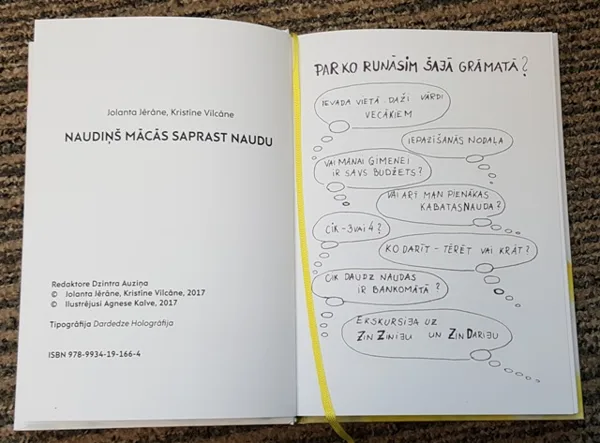 Jolanta Jērāne, Kristīne Vilcāne
NAUDIŅŠ MĀCĀS SAPRAST NAUDU
Redaktore Dzintra Auziņa
© Jolanta Jērāne, Kristīne Vilcāne, 2017
© Ilustrējusi Agnese Kalve, 2017
Tipogrāfija Dardedze Hologrāfija
ISBN 978-9934-19-166-4
PAR KO RUNĀSIM ŠAJĀ GRĀMATĀ?
IEVADA VIETĀ DAŽI VĀRDI
VECĀKIEM
IEPAZĪŠANĀS NODAĻA
VAI MANAI ĢIMENEI
IR SAVS BUDŽETS?
VAI ARĪ MAN PIENĀKAS
KABATASNAUDA?
CIK - 3 VAI 4?
KO DARĪT - TĒRĒT VAI KRĀT?
CIK DAUDZ NAUDAS
IR BANKOMĀTĀ?
EKSKURSIJA UZ
ZIN ZINIJU UN ZIN DARIJU